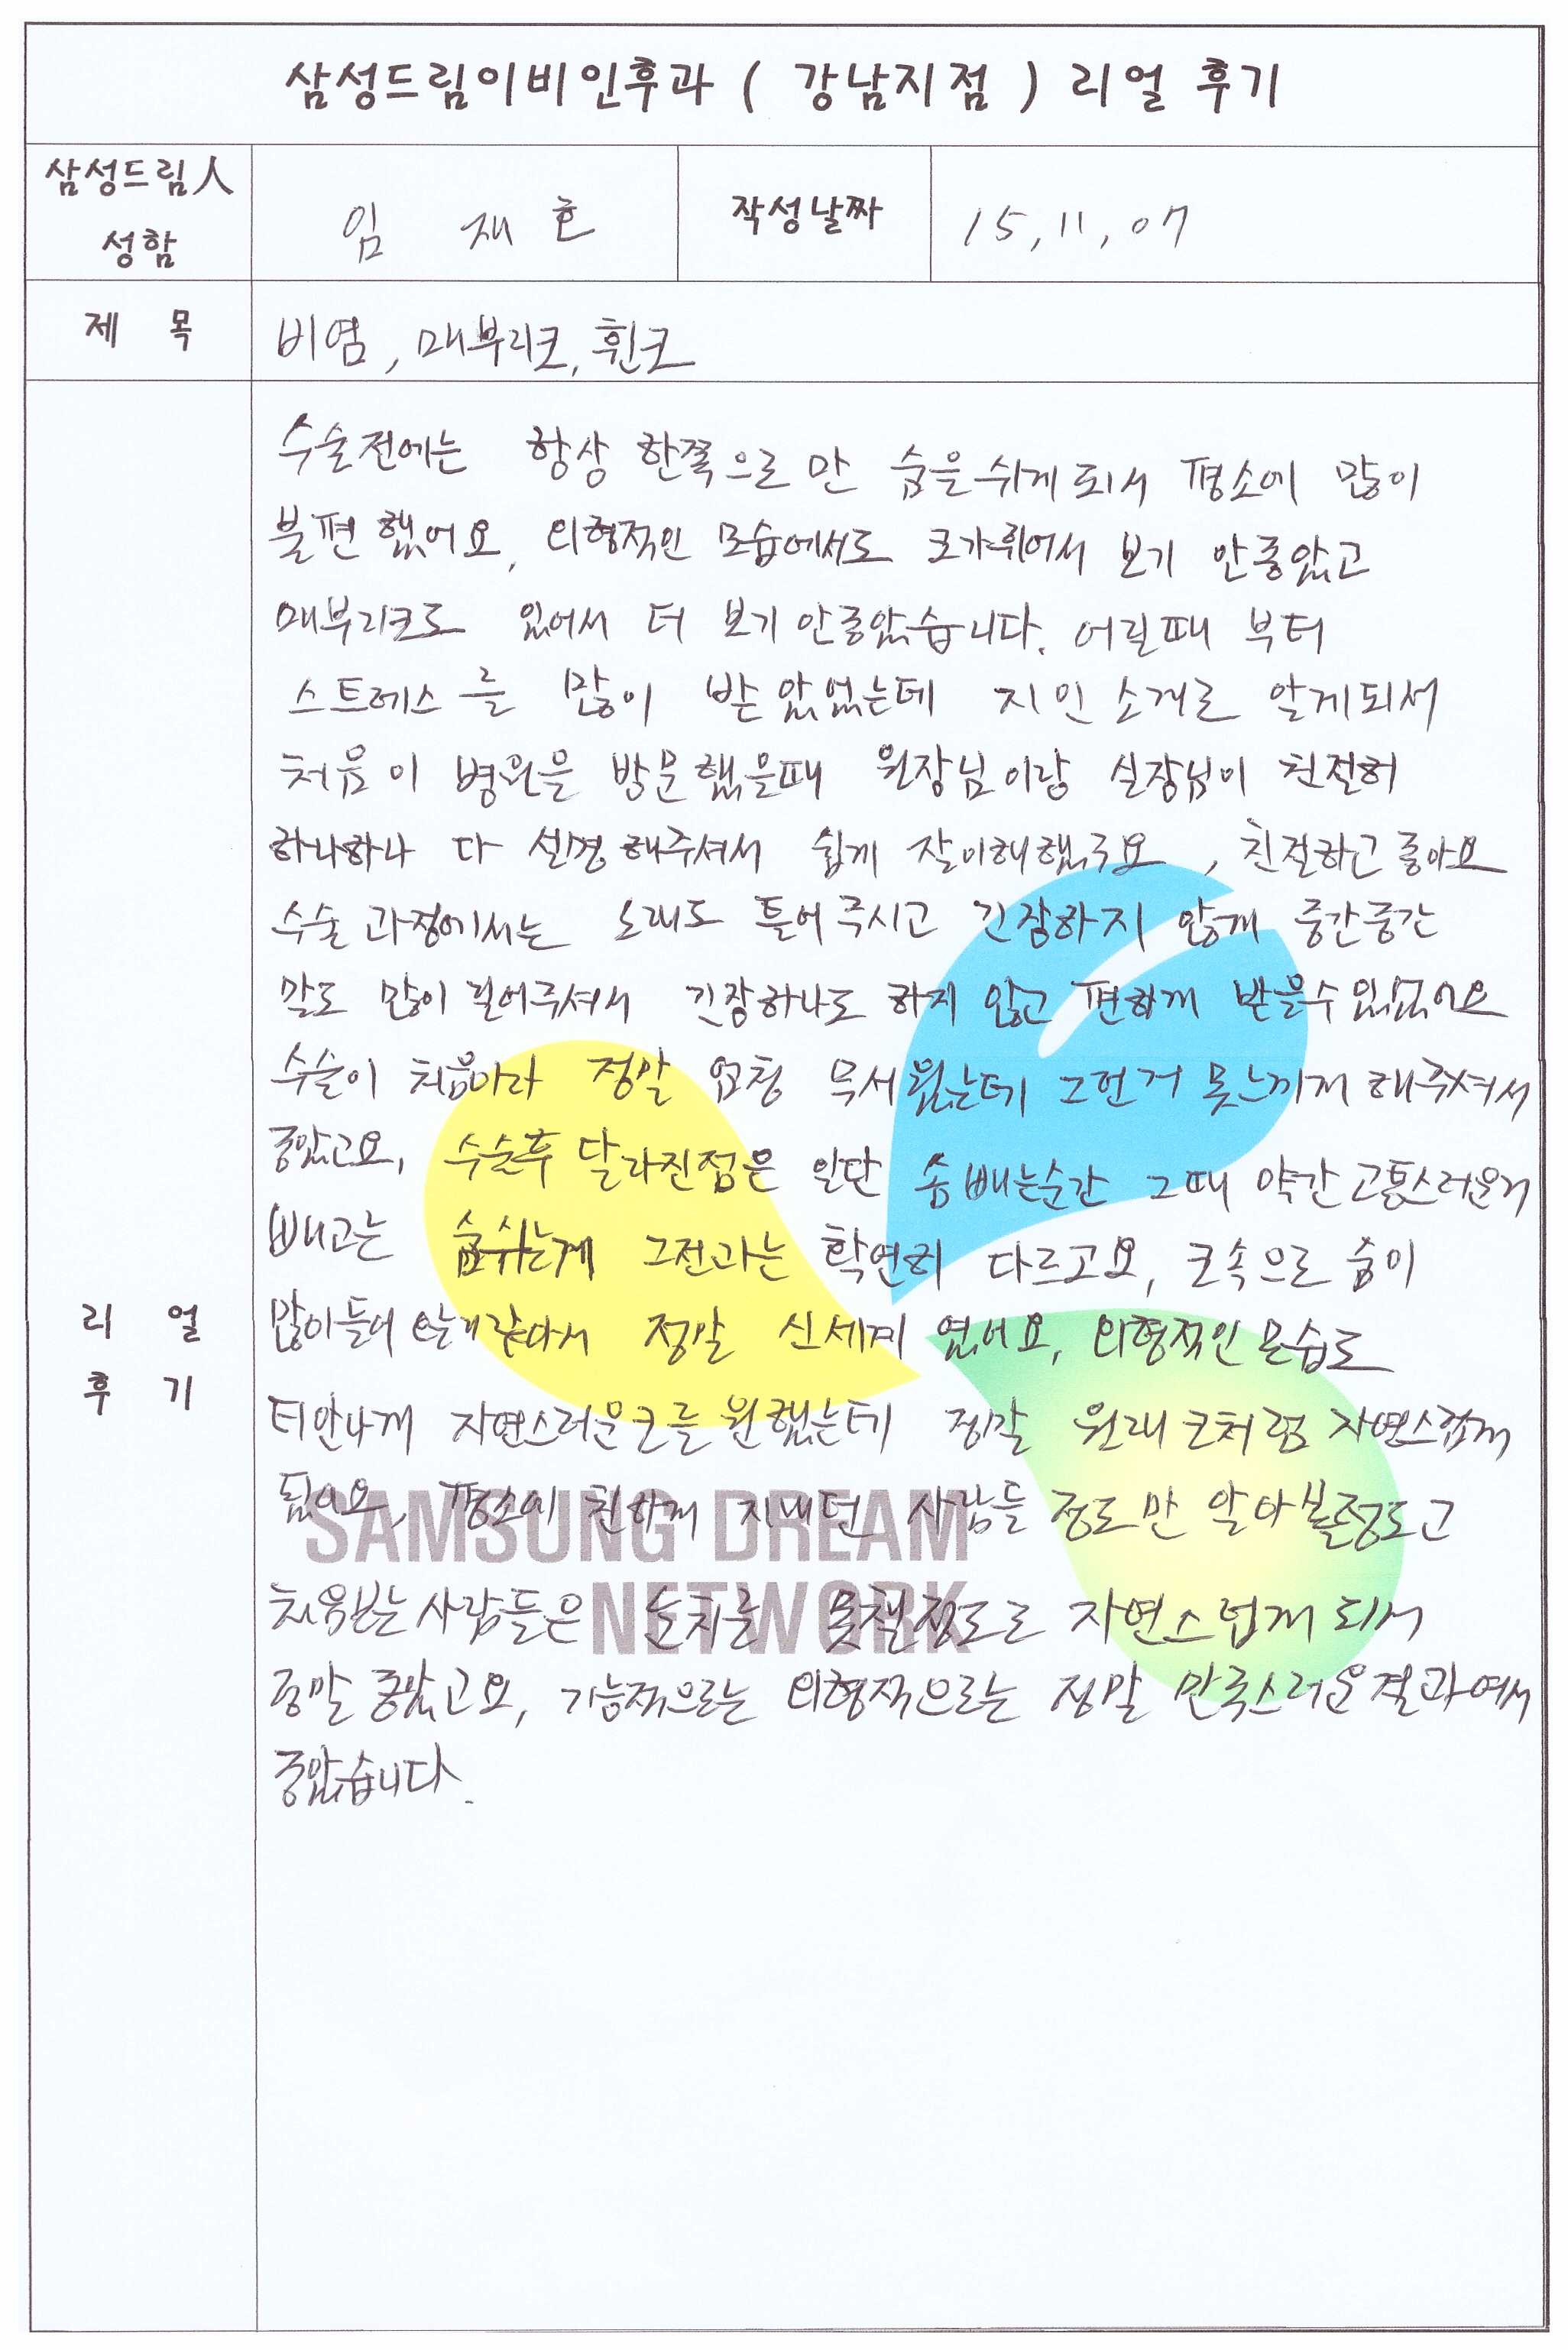 삼성드림이비인후과 ( 강남지점 ) 리얼 후기
삼성드림人
성함
임 재 호
작성날짜
15, 11, 07
제 목
비염, 매부리코, 휜코
리 얼
후 기
수술전에는 항상 한쪽으로 만 숨을쉬게 되서 평소에 많이
불편 했어요, 외형적인 모습에서도 코가휘어서 보기 안좋았고
매부리코도 있어서 더 보기 안좋았습니다. 어릴때 부터
스트레스 를 많이 받 았었는데 지인 소개로 알게되서
처음 이 병원을 방문했을때 원장님이랑 실장님이 친절히
하나하나 다 설명 해주셔서 쉽게 잘이해했구요, 친절하고 좋아요
수술 과정에서는 노래도 틀어 주시고 긴장하지 않게 중간중간
말도 많이 걸어주셔서 긴장하나도 하지 않고 편하게 받을수있었어요
수술이 처음이라 정말 엄청 무서웠는데 그런거 못느끼게 해주셔서
좋았고요, 수술후 달라진점은 일단 솜 빼는순간 그때 약간 고통스러운거
빼고는 숨쉬는게 그전과는 확연히 다르고요, 코속으로 숨이
많이들어 오는거같아서 정말 신세계 였어요, 외형적인 모습도
티안나게 자연스러운코를 원했는데 정말 원래 코처럼 자연스럽게
됬어요, 평소에 친하게 지내던 사람들 정도만 알아볼정도고
처음보는 사람들은 눈치를 못챌정도로 자연스럽게 되서
정말 좋았고요, 기능적으로는 외형적으로는 정말 만족스러운결과여서
좋았습니다.
SAMSUNG DREAM
NETWORK